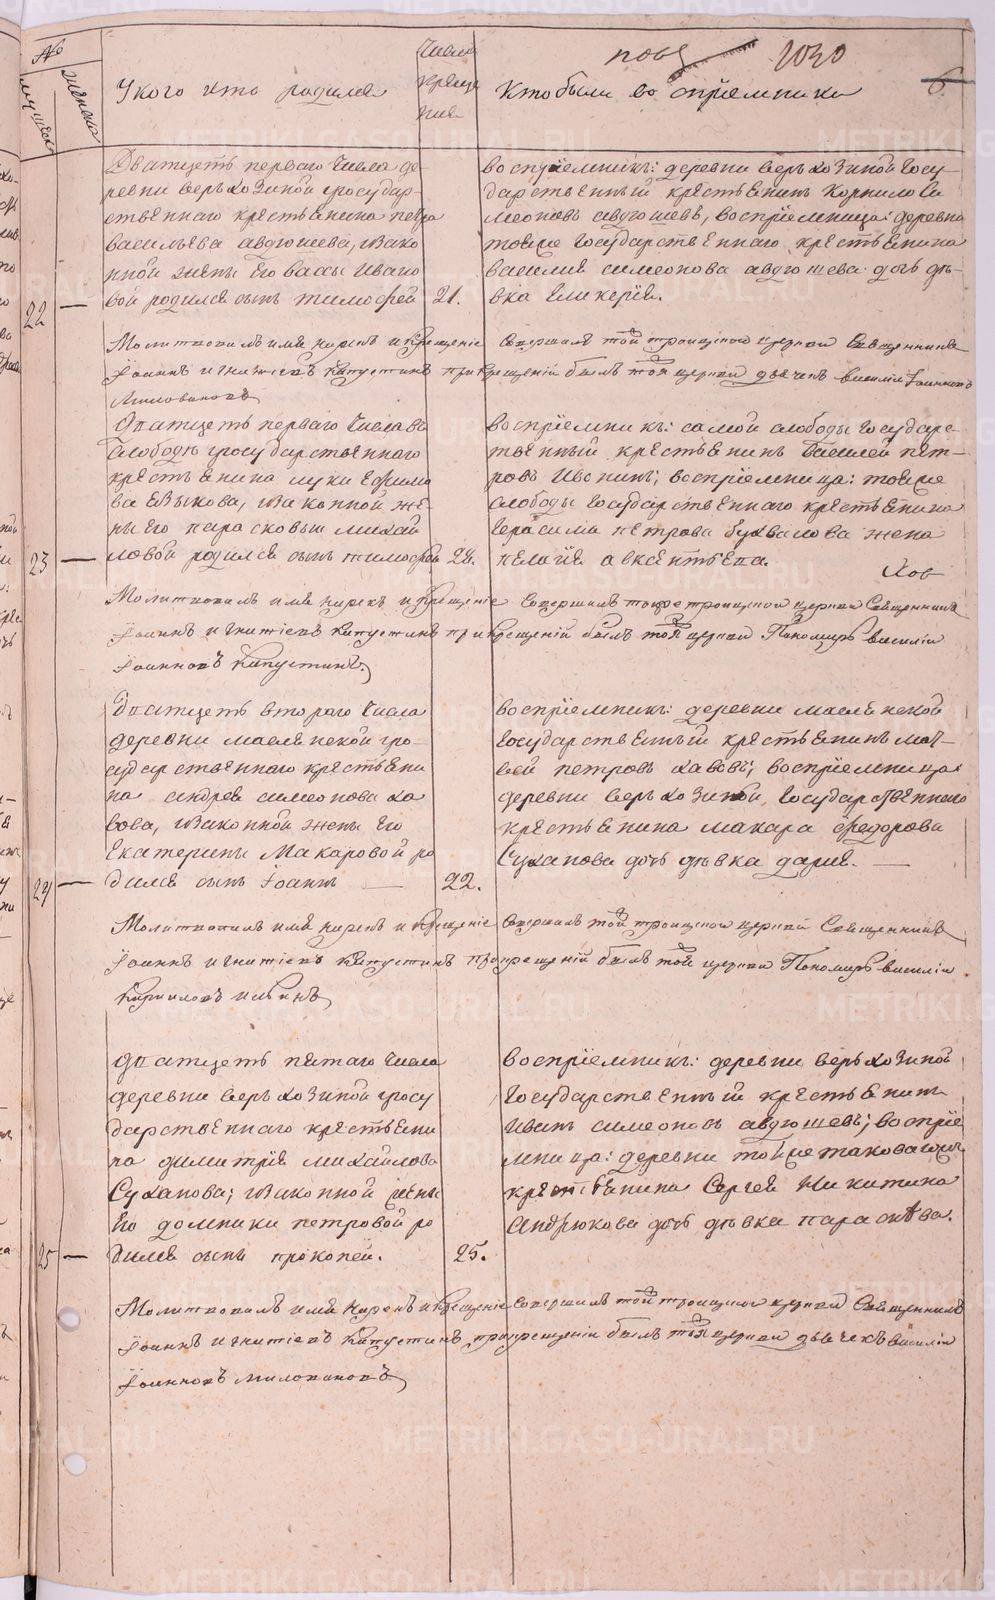 №
мужеск
женска
У кого кто родился
Числа
креще
ния
Кто были восприемники
1030
6.
Дватцеть перваго Числа де-
ревни верьхозиной государ-
ственнаго крестьянина петра
васильева авдюшева, изако
нной жены его вассы ивано
вой родился сынъ тимофей 21.
22 —
восприемникъ: деревни верьхозиной Госу-
дарственный крестьянинъ Корнило Си
меоновъ авдюшевъ, восприемница: деревни
тояже Государственнаго крестьянина
василия симеонова авдюшева дочь дѣ-
вка гликерия.
Молитвовалъ имя нарекъ и крещение совершалъ той троицкой церкви Священникъ
Иоаннъ игнатиевъ Капустинъ при крещении былъ той церкви дьячекъ василий Иоанновъ
Миловановъ
Дватцеть перваго Числа во
Слободѣ государственнаго
крестьянина луки Ефимо
ва Языкова, изаконной же-
ны его парасковьи михай
ловой родился сынъ тимофей
23 —
восприемникъ: самой слободы Государс-
твенный крестьянинъ Василей пет-
ровъ Ивонинъ; восприемница: тояже
слободы Государственнаго крестьянина
Герасима петрова жена
пелагия авксентьева.
Молитвовалъ имя нарекъ и крещение совершалъ тоже троицкой церкви Священникъ
Иоаннъ игнатиевъ Капустинъ при крещении былъ той церкви Пономарь василий
Иоанновъ Капустинъ.
Дватцеть втораго Числа
деревни маслянской го-
сударственнаго крестьяни
на андрея симеонова ха
вова, изаконной жены его
Екатерины Макаровой ро
дился сынъ Иоаннъ — 22.
24 —
восприемникъ: деревни маслянской
Государственный крестьянинъ мат-
вей петровъ хавовъ; восприемница:
деревни верьхозиной, Государственнаго
крестьянина макара федорова
Суханова дочь дѣвка дария. —
Молитвовалъ имя нарекъ и крещение совершалъ той троицкой церкви Священникъ
Иоаннъ игнатиевъ Капустинъ при крещении былъ той церкви Пономарь василий
Дватцеть пятаго Числа
деревни верьхозиной госу
дарственнаго крестьяни
на димитрия михайлова
Суханова; изаконной жены
Его домники петровой ро
дился сынъ прокопей. 25.
25 —
восприемникъ: деревни верьхозиной
Государственный крестьянинъ
Иванъ симеоновъ авдюшевъ; восприе
мница: деревни тойже таковагожъ
крестьянина Сергея Никитина
Андрюкова дочь дѣвка парасквева.
Молитвовалъ имя нарекъ и крещение совершалъ той троицкой церкви Священникъ
Иоаннъ игнатиевъ Капустинъ при крещении былъ той церкви дьячекъ василий
Иоанновъ миловановъ